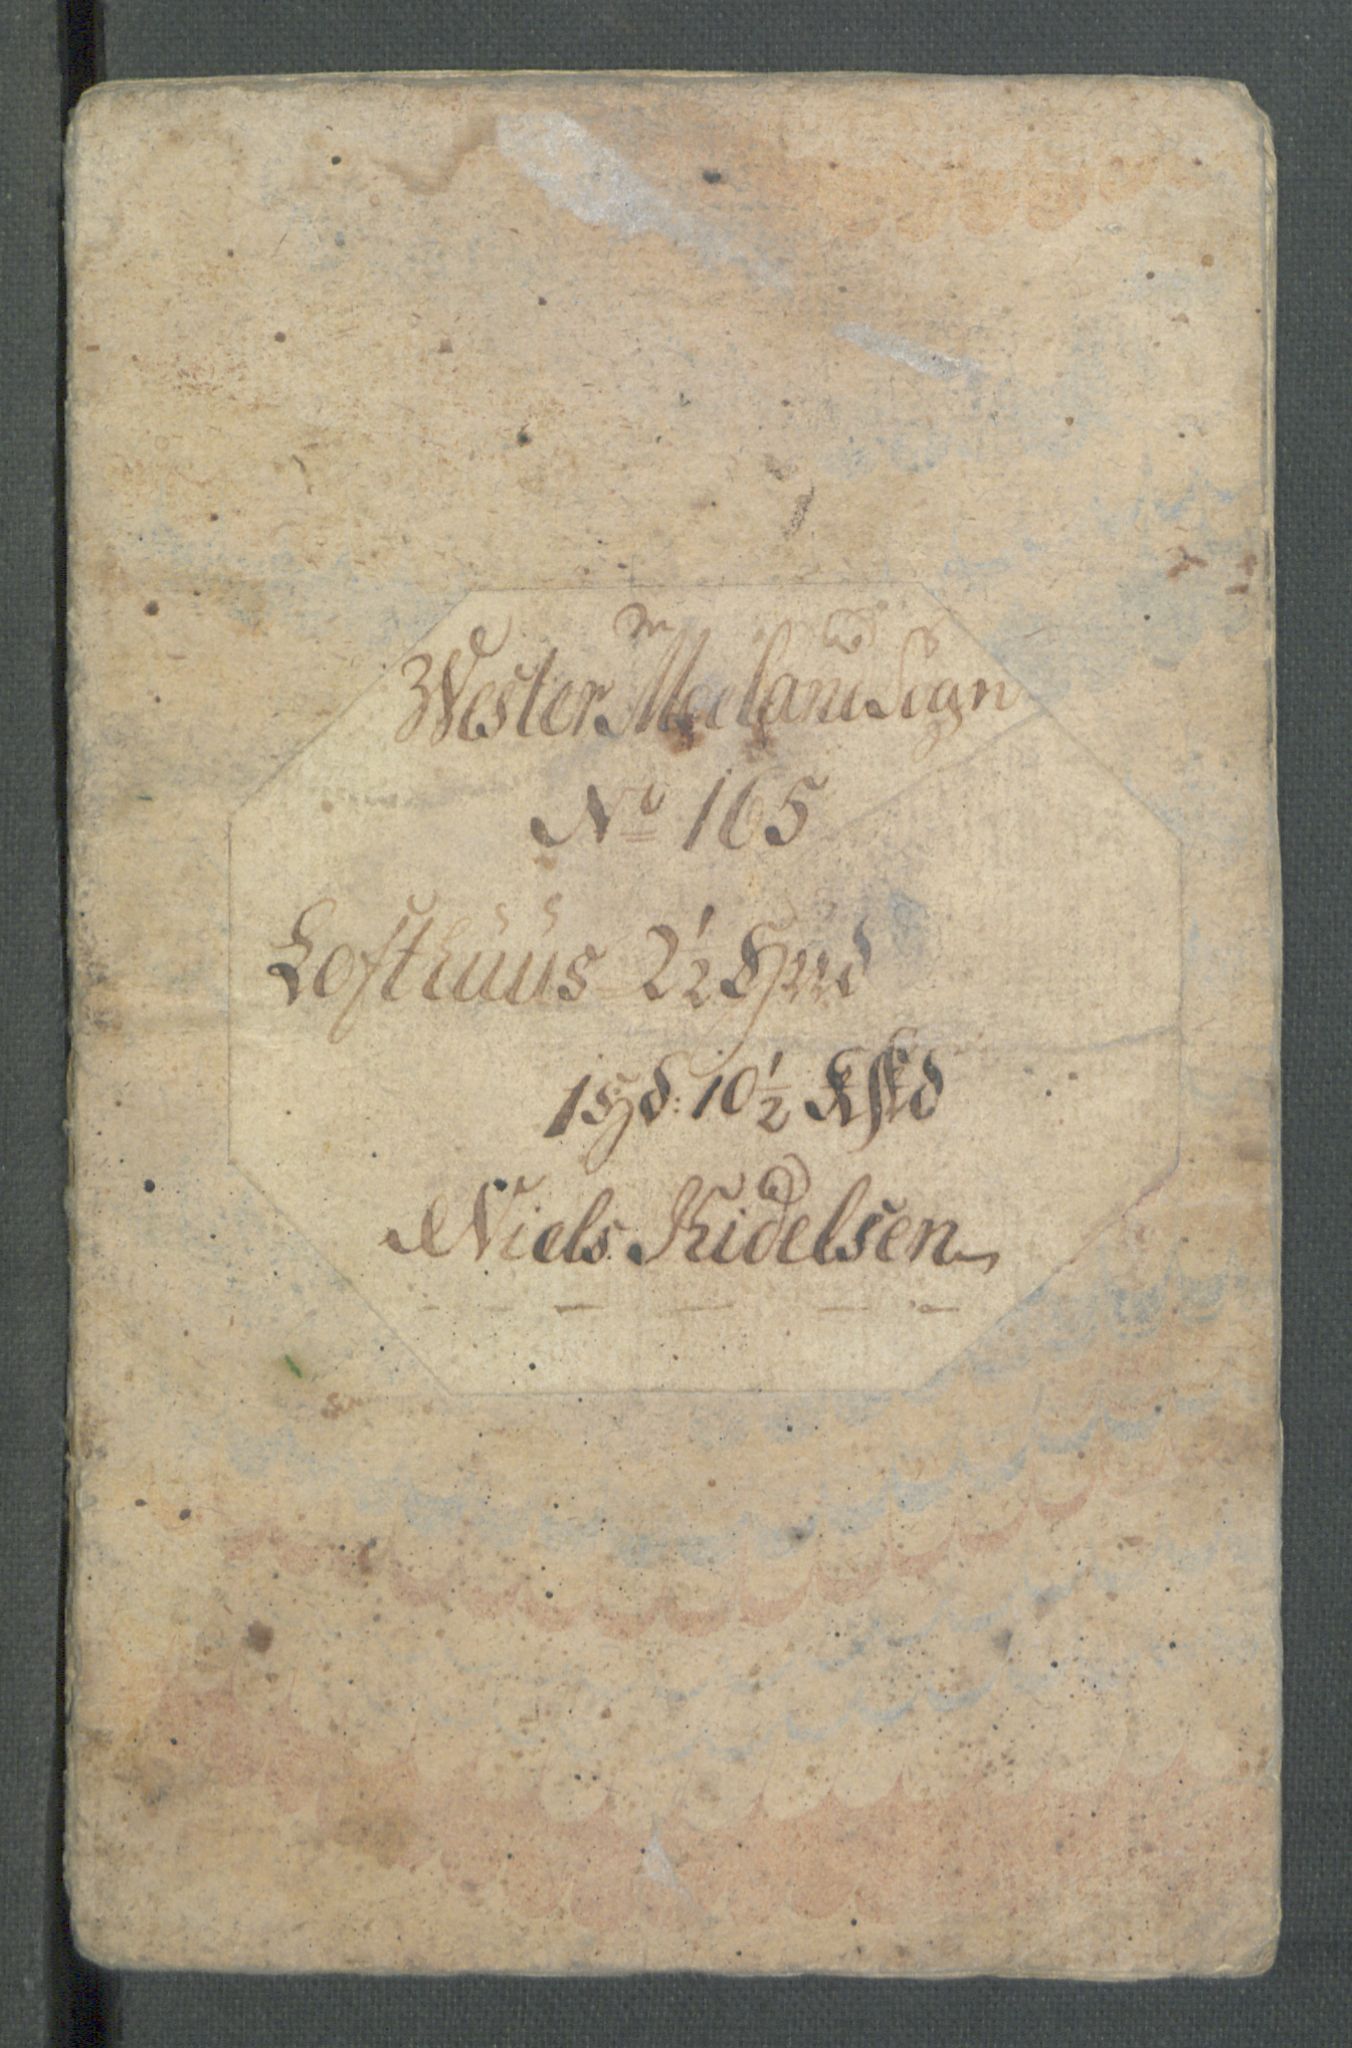 Wester Moeland Sogn
No 165
Lofthuus 2½ Hud
1 Hd: 10½ Skd
Niels Kidelsen